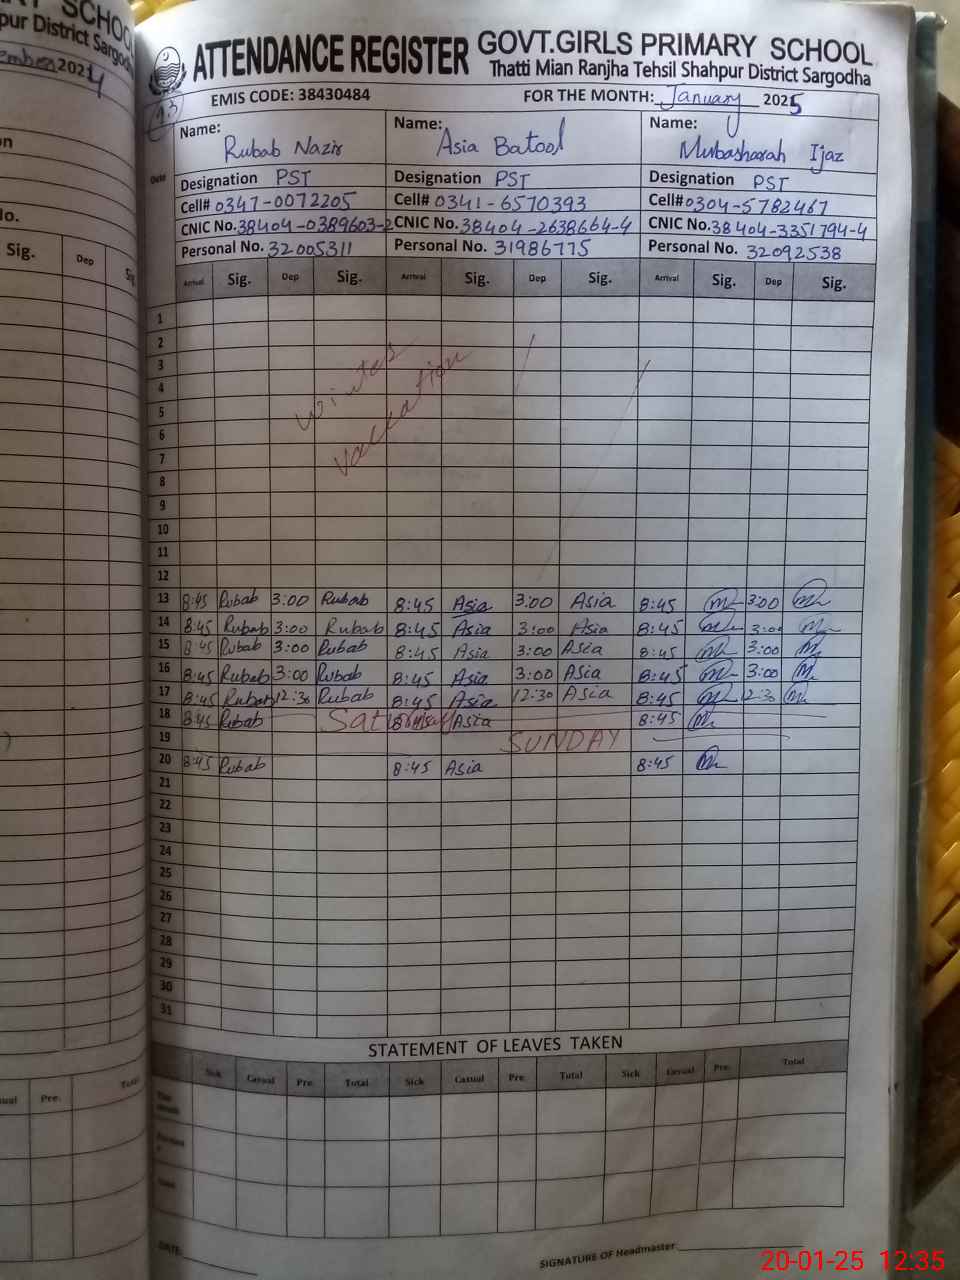 SCHOOL
pur District Sargodha
2024
ATTENDANCE REGISTER GOVT.GIRLS PRIMARY SCHOOL
Thatti Mian Ranjha Tehsil Shahpur District Sargodha
EMIS CODE: 38430484 FOR THE MONTH: January 2025
Date
Name: Rubab Nazir Name: Asia Batool Name: Mubasharah Ijaz
Designation PST Designation PST Designation PST
Cell# 0347-0072205 Cell# 0341-6570393 Cell# 0304-5782467
CNIC No. 38404-0389603-2 CNIC No. 38404-2638664-4 CNIC No. 38404-3351794-4
Personal No. 32005311 Personal No. 31986775 Personal No. 32092538
Sig. Dep Sig.
Arrival Sig. Dep Sig. Arrival Sig. Dep Sig. Arrival Sig. Dep Sig.
1
2
3
4
5
6
7
8
9
10
11
12
Winter
Vaccation
13 8:45 Rubab 3:00 Rubab 8:45 Asia 3:00 Asia 8:45 3:00
14 8:45 Rubab 3:00 Rubab 8:45 Asia 3:00 Asia 8:45 3:00
15 8:45 Rubab 3:00 Rubab 8:45 Asia 3:00 Asia 8:45 3:00
16 8:45 Rubab 3:00 Rubab 8:45 Asia 3:00 Asia 8:45 3:00
17 8:45 Rubab 12:30 Rubab 8:45 Asia 12:30 Asia 8:45 12:30
18 8:45 Rubab 8:45 Asia 8:45
19 SUNDAY
20 8:45 Rubab 8:45 Asia 8:45
21
22
23
24
25
26
27
28
29
30
31
STATEMENT OF LEAVES TAKEN
Sick Casual Pre. Total Sick Casual Pre. Total Sick Casual Pre. Total
Pre. Total
DATE:
SIGNATURE OF Headmaster:
20-01-25 12:35